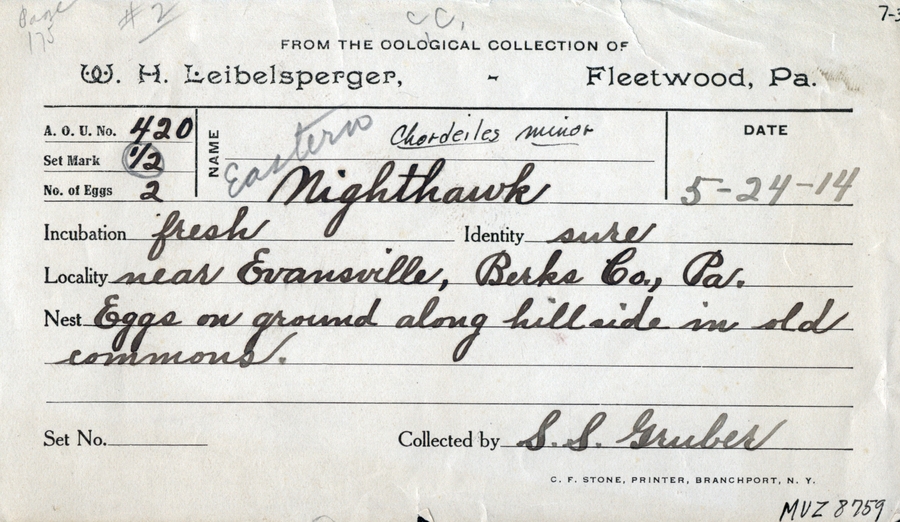 Page
175
#2
cc.
7-3
FROM THE OOLOGICAL COLLECTION OF
W. H. Leibelsperger, - Fleetwood, Pa.
A. O. U. No. 420
Set Mark 1/2
No. of Eggs 2
NAME
Eastern
Chordeiles minor
Nighthawk
DATE
5-24-14
Incubation fresh Identity sure
Locality near Evansville, Berks Co., Pa.
Nest Eggs on ground along hillside in old
commons.
Set No. Collected by S. S. Gruber
C. F. STONE, PRINTER, BRANCHPORT, N. Y.
MVZ 8759